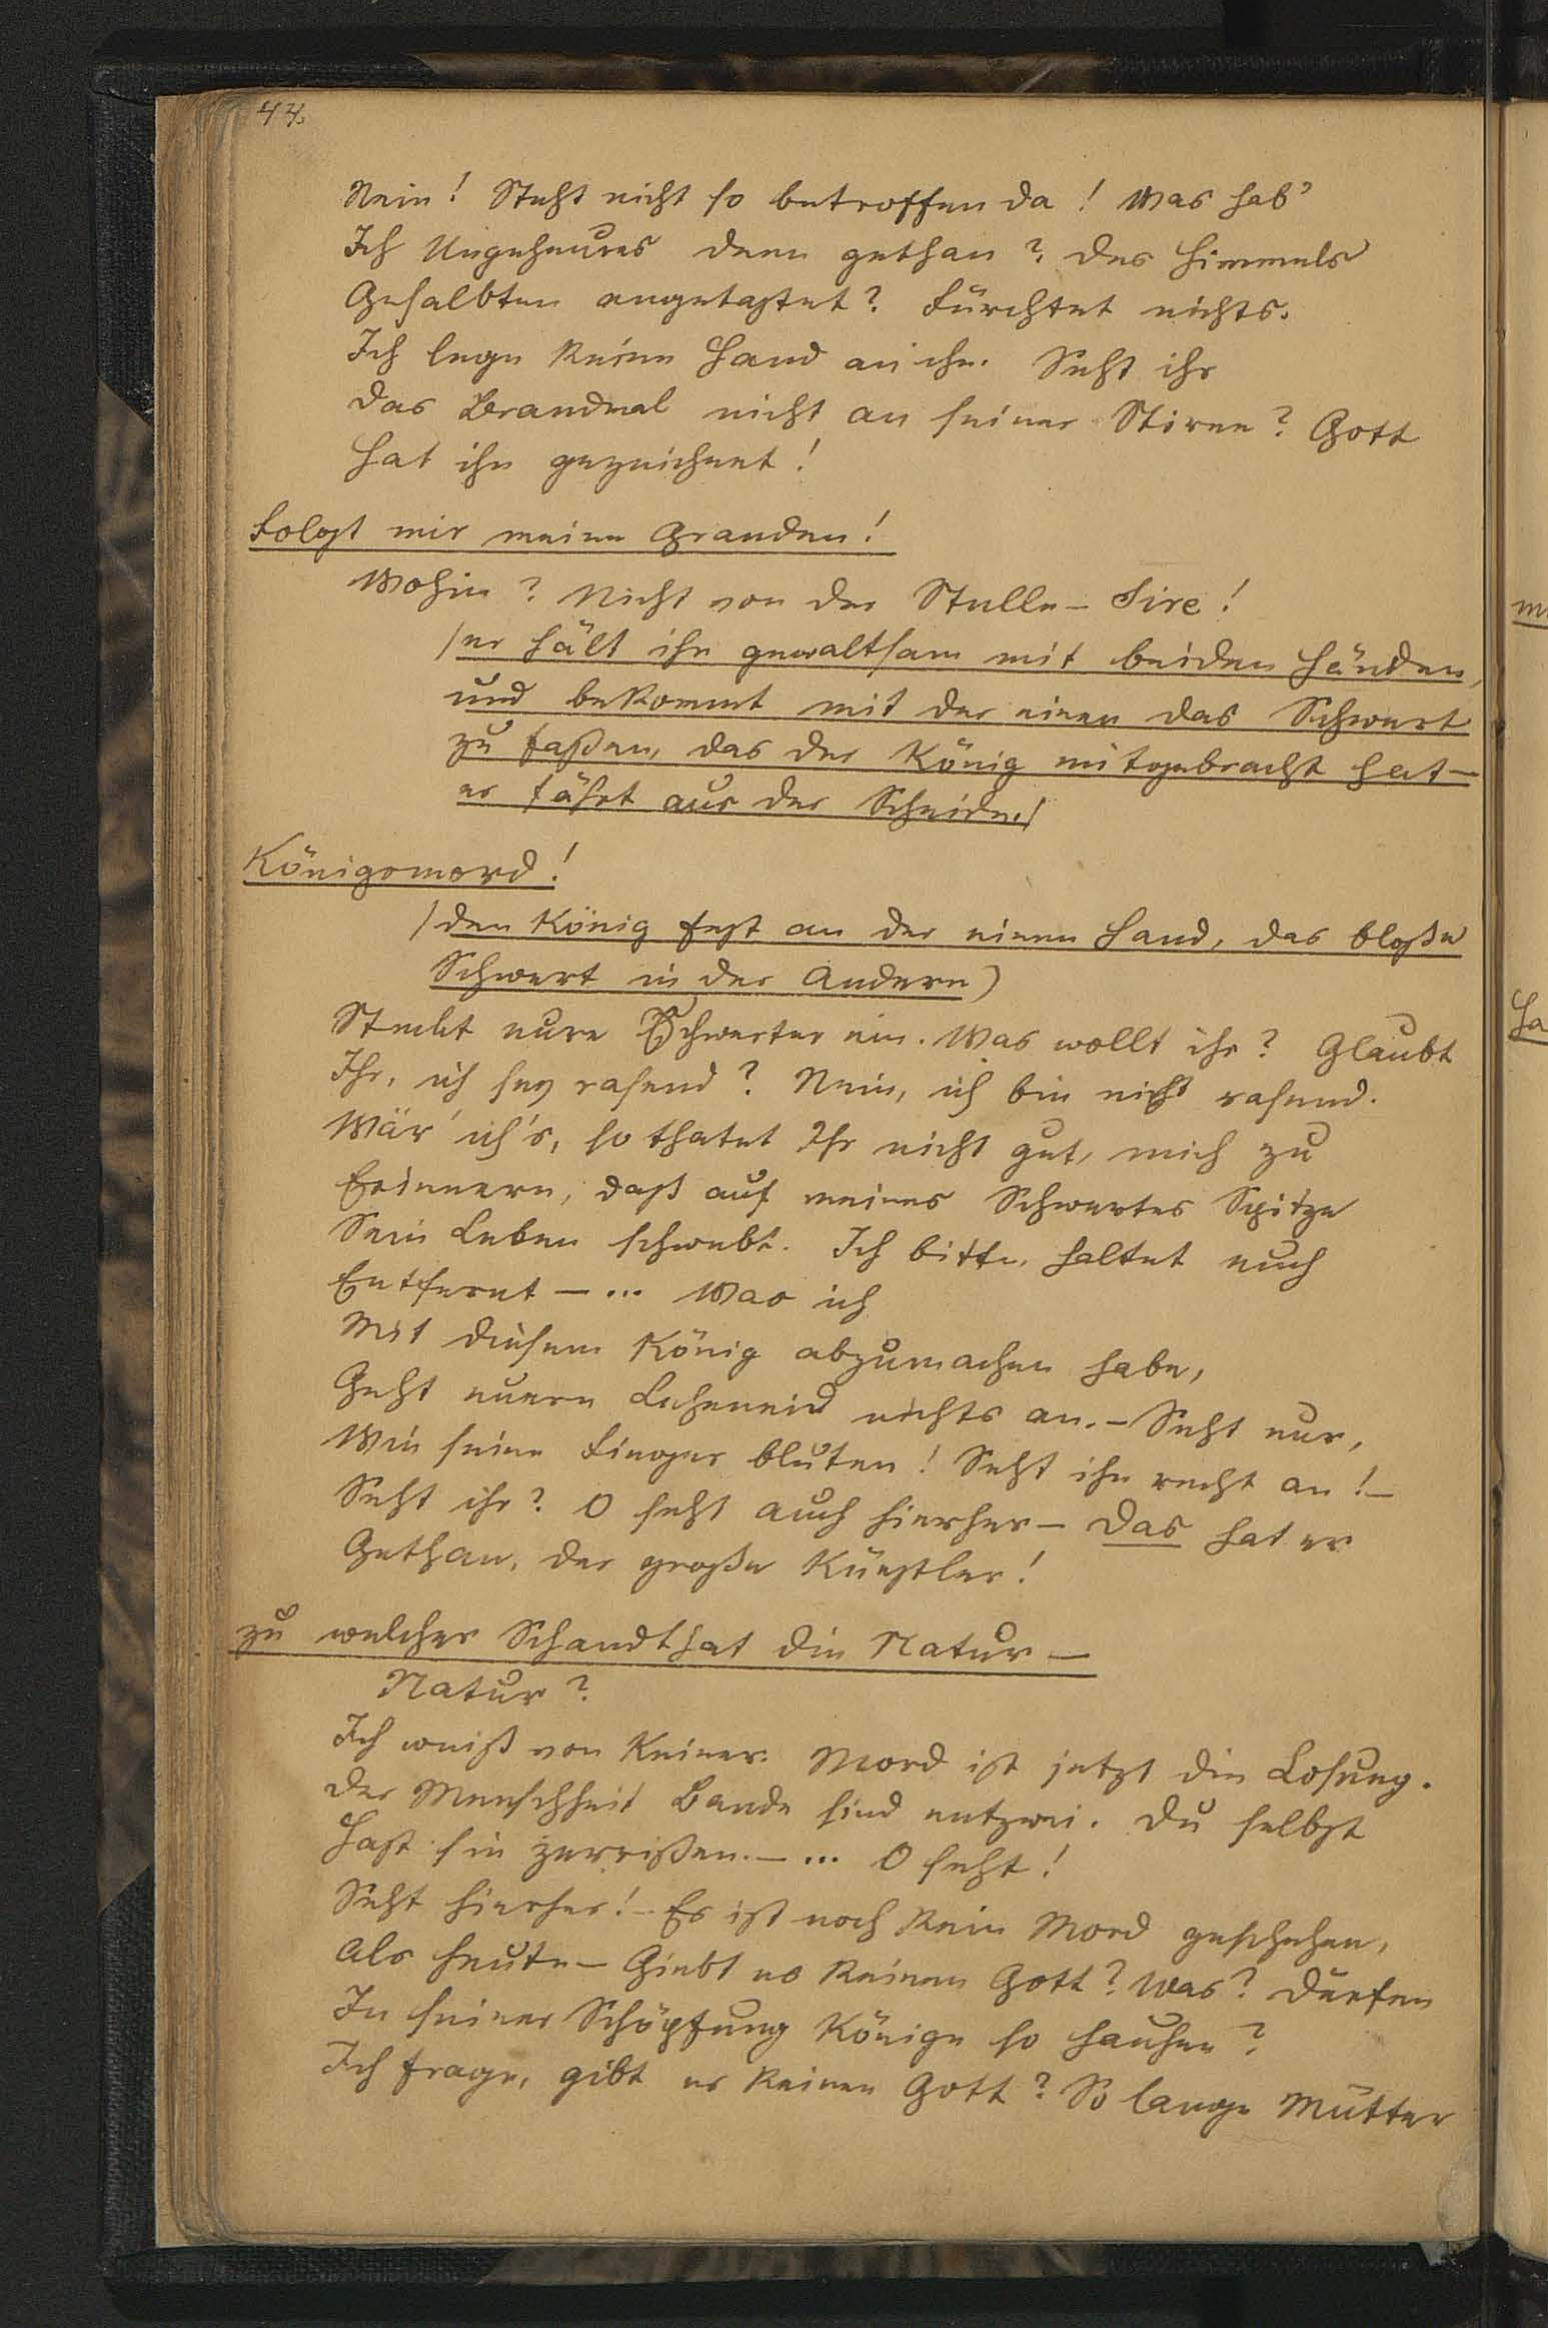 44.
Nein! Steht nicht so betroffen da! Was hab'
Ich Ungeheures denn gethan? Des Himmels
Gesalbten angetastet? Fürchtet nichts.
Ich lege keine Hand an ihn. Seht ihr
Das Brandmal nicht an seiner Stirne? Gott
Hat ihn gezeichnet!
Folgt mir meine Granden!
Wohin? Nicht von der Stelle – Sire!
/er hält ihn gewaltsam mit beiden Händen,
und bekommt mit der einen das Schwert
zu faßen, das der König mitgebracht hat –
er fährt aus der Scheide./
Königsmord!
/den König fest an der einen Hand, das bloße
Schwert in der Andern)
Steckt eure Schwerter ein. Was wollt ihr? Glaubt
Ihr, ich sey rasend? Nein, ich bin nicht rasend.
Wär' ich's, so thatet Ihr nicht gut, mich zu
Erinnern, daß auf meines Schwertes Spitze
Sein Leben schwebt. Ich bitte, haltet euch
Entfernt – ... Was ich
Mit diesem König abzumachen habe,
Geht euern Leheneid nichts an. – Seht nur,
Wie seine Finger bluten! Seht ihn recht an! –
Seht ihr? O seht auch hierher – Das hat er
Gethan, der große Künstler!
zu welcher Schandthat die Natur –
Natur?
Ich weiß von Keiner. Mord ist jetzt die Losung.
Der Menschheit Bande sind entzwei. Du selbst
Hast sie zerrißen. – ... O seht!
Seht hierher! – Es ist noch kein Mord geschehen,
Als heute – Giebt es keinen Gott? Was? Dürfen
In seiner Schöpfung Könige so hausen?
Ich frage, gibt es keinen Gott? So lange Mütter
m
Ha